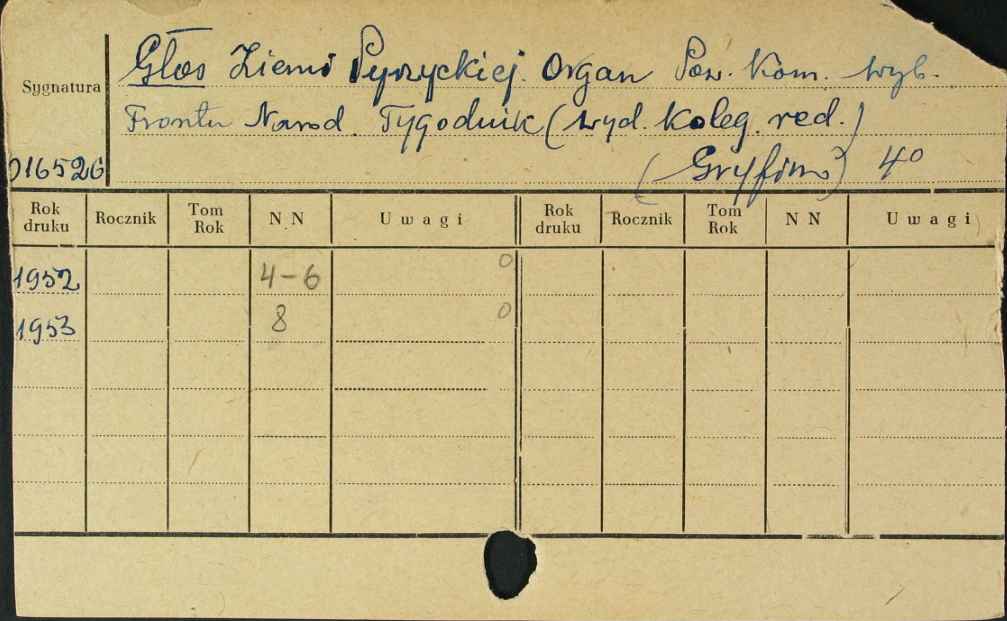 Głos Ziemi Pyrzyckiej. Organ Pow. Kom. wyb.
Sygnatura
Frontu Narod. Tygodnik (wyd. koleg. red.)
016526
(Gryfino) 4°
Rok druku Rocznik Tom Rok N N Uwagi Rok druku Rocznik Tom Rok N N Uwagi
1952 4-6 0
1953 8 0